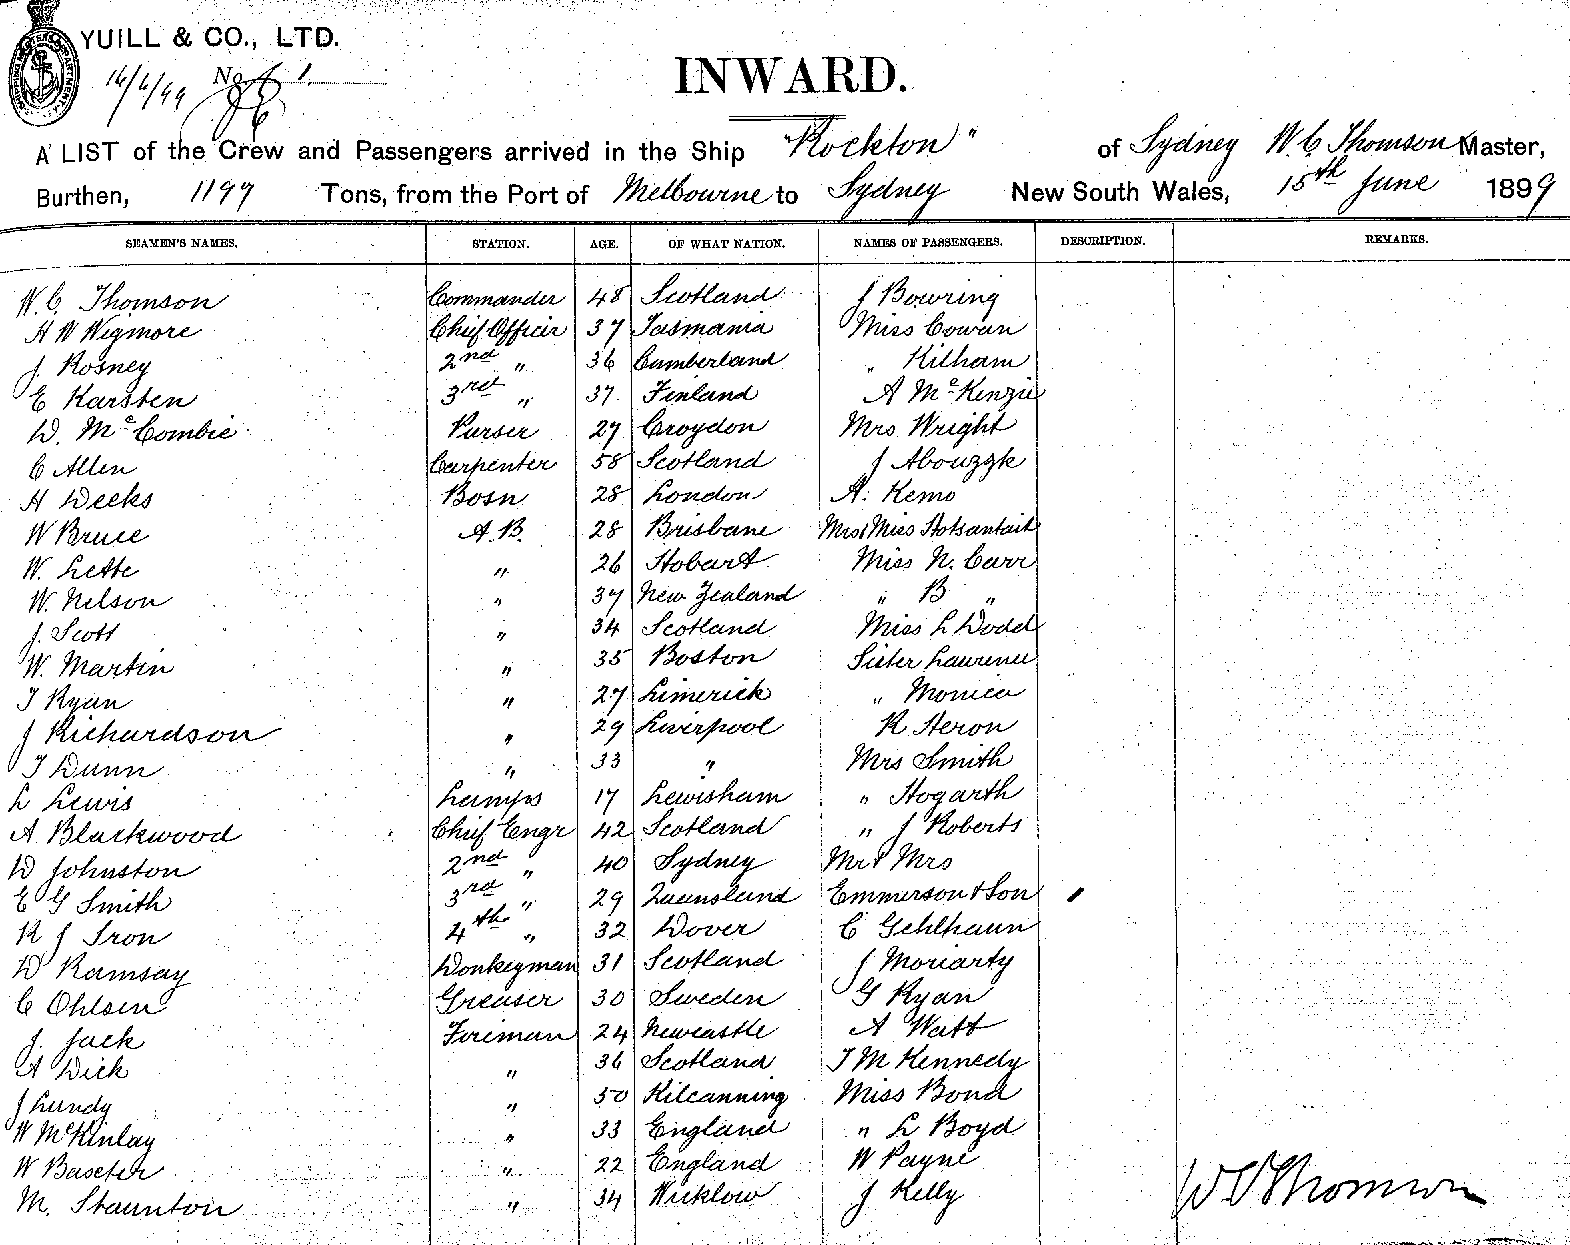 YUILL & CO., LTD.
14/6/99 No 1.
INWARD.
A LIST of the Crew and Passengers arrived in the Ship "Rockton" of Sydney W. C. Thomson Master,
Burthen, 1199 Tons, from the Port of Melbourne to Sydney New South Wales, 15th June 1899
SEAMEN'S NAMES. STATION. AGE. OF WHAT NATION. NAMES OF PASSENGERS. DESCRIPTION. REMARKS.
W. C. Thomson Commander 48 Scotland J Bowring
H W Wigmore Chief Officer 37 Tasmania Miss Cowan
J. Rosney 2nd " 36 Cumberland " Kilham
E Karsten 3rd " 37 Finland A McKenzie
W. McCombie Purser 27 Croydon Mrs Wright
C Allen Carpenter 58 Scotland J Abouzgk
H Weeks Bosn 28 London A. Kemo
W Bruce A.B. 28 Brisbane Mrs & Miss
W. Lette " 26 Hobart Miss N. Carr
W. Nelson " 37 New Zealand " B "
J. Scott " 34 Scotland Miss L Dodd
W. Martin " 35 Boston Sister Laurence
T Ryan " 27 Limerick " Monica
J Richardson " 29 Liverpool R Heron
T Dunn " 33 " Mrs Smith
L Lewis Lamps 17 Lewisham " Hogarth
A Blackwood Chief Engr 42 Scotland " J Roberts
W Johnston 2nd " 40 Sydney Mr & Mrs
E G Smith 3rd " 29 Queensland Emmerson & Son
R J Iron 4th " 32 Dover C Gehlhaun
W Ramsay Donkeyman 31 Scotland J Moriarty
C Ohlsen Greaser 30 Sweden G Ryan
J. Jack Fireman 24 Newcastle A Watt
A Dick " 36 Scotland T M Kennedy
J Lundy " 50 Kilcanning Miss Bond
W McKinlay " 33 England " L Boyd
W Baxter " 22 England W Payne
M. Staunton " 34 Wicklow J Kelly
W C Thomson